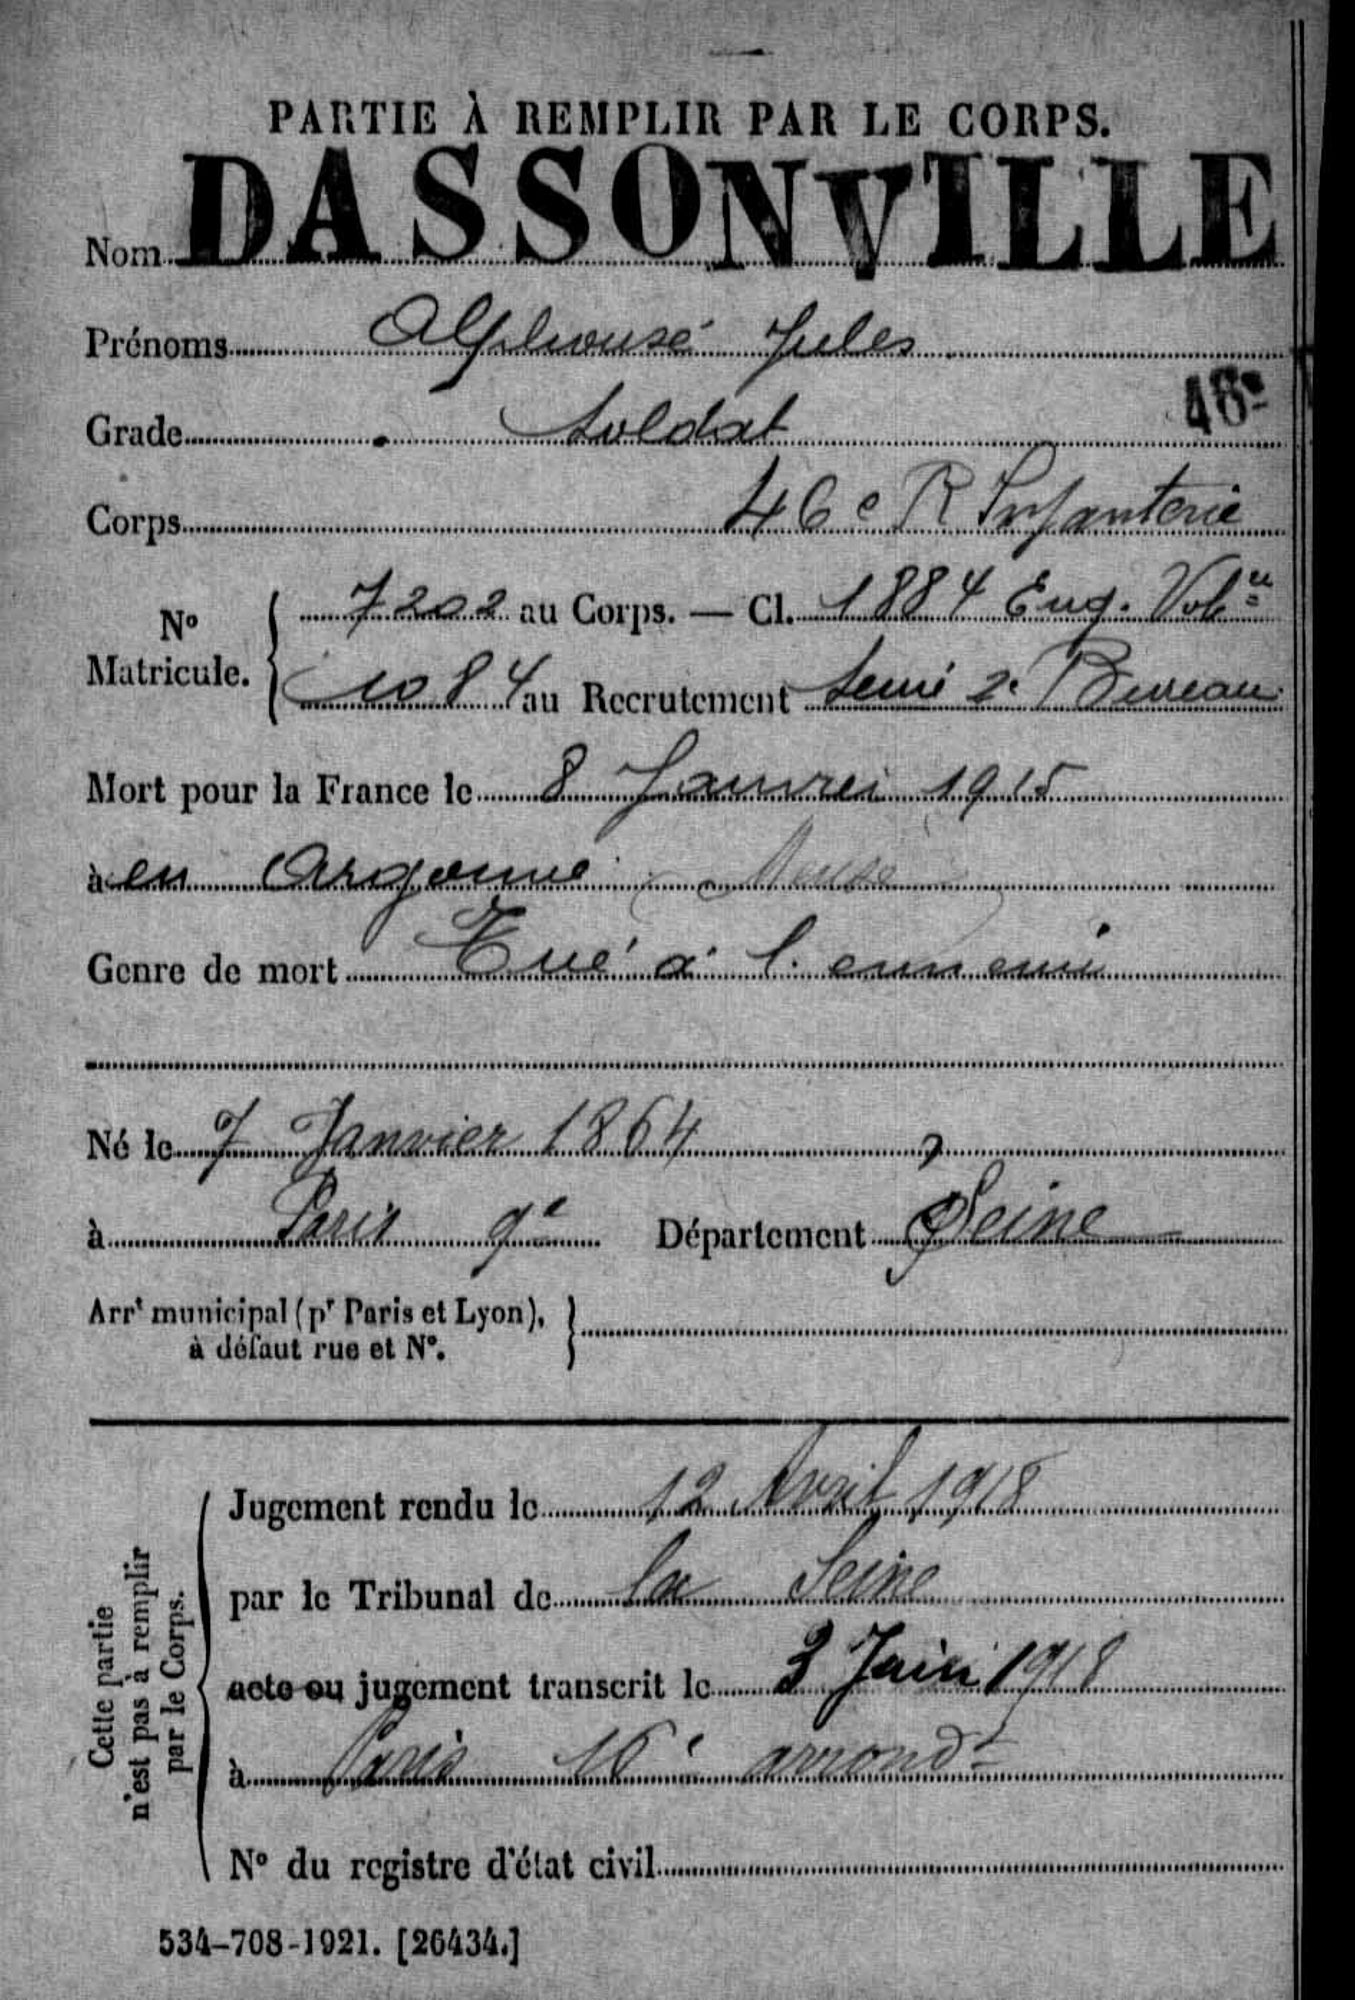 PARTIE À REMPLIR PAR LE CORPS.
Nom DASSONVILLE
Prénoms Alphonse Jules
46e
Grade Soldat
Corps 46e R Infanterie
N° Matricule. 7202 au Corps. — Cl. 1884 Eng. Vol.re
1084 au Recrutement Seine 2e Bureau
Mort pour la France le 8 Janvier 1915
à en Argonne (Meuse)
Genre de mort Tué à l'ennemi
Né le 7 Janvier 1864
à Paris 9e Département Seine
Arrt municipal (pr Paris et Lyon),
à défaut rue et N°.
Cette partie
n'est pas à remplir
par le Corps.
Jugement rendu le 12 Avril 1918
par le Tribunal de la Seine
acte ou jugement transcrit le 3 Juin 1918
à Paris 16e arrondt
N° du registre d'état civil
534-708-1921. [26434.]